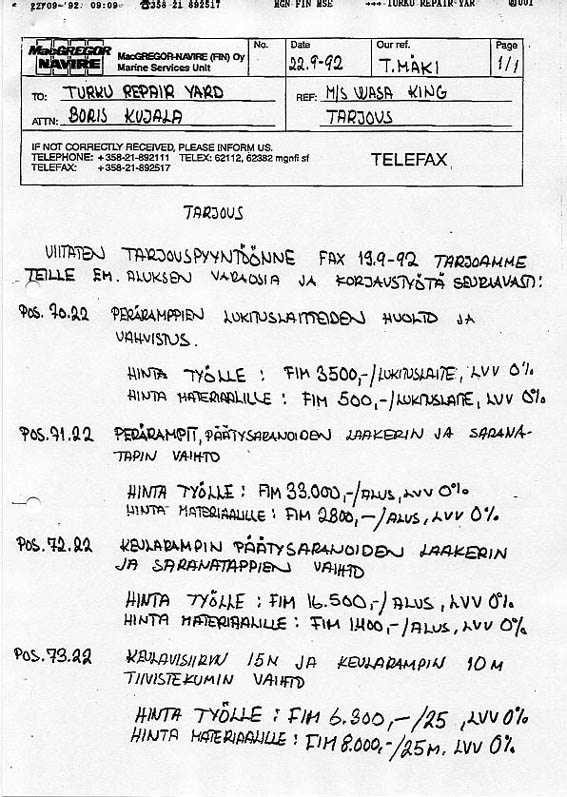 22/09-'92 09:09 ☎358 21 892517 MGN FIN MSE →→→ TURKU REPAIR YAR 001
MacGREGOR
NAVIRE
MacGREGOR-NAVIRE (FIN) Oy
Marine Services Unit
No.
Date
22.9-92
Our ref.
T. MÄKI
Page
1/1
TO: TURKU REPAIR YARD
ATTN: BORIS KUJALA
REF: M/S WASA KING
TARJOUS
IF NOT CORRECTLY RECEIVED, PLEASE INFORM US.
TELEPHONE: +358-21-892111 TELEX: 62112, 62382 mgnfi sf
TELEFAX: +358-21-892517
TELEFAX
TARJOUS
VIITATEN TARJOUSPYYNTÖÖNNE FAX 19.9-92 TARJOAMME
TEILLE EM. ALUKSEN VARAOSIA JA KORJAUSTYÖTÄ SEURAAVASTI:
POS. 70.22 PERÄRAMPPIEN LUKITUSLAITTEIDEN HUOLTO JA
VAHVISTUS.
HINTA TYÖLLE : FIM 3500,-/LUKITUSLAITE, LVV 0%
HINTA MATERIAALILLE : FIM 500,-/LUKITUSLAITE, LVV 0%
POS. 71.22 PERÄRAMPIT, PÄÄTYSARANOIDEN LAAKERIN JA SARANA-
TAPIN VAIHTO
HINTA TYÖLLE : FIM 33.000,-/ALUS, LVV 0%
HINTA MATERIAALILLE : FIM 2800,-/ALUS, LVV 0%
POS. 72.22 KEULARAMPIN PÄÄTYSARANOIDEN LAAKERIN
JA SARANATAPPIEN VAIHTO
HINTA TYÖLLE : FIM 16.500,-/ALUS, LVV 0%
HINTA MATERIAALILLE : FIM 1400,-/ALUS, LVV 0%
POS. 73.22 KEULAVISIIRIN 15M JA KEULARAMPIN 10M
TIIVISTEKUMIN VAIHTO
HINTA TYÖLLE : FIM 6.300,-/25 , LVV 0%
HINTA MATERIAALILLE : FIM 8.000,-/25M. LVV 0%